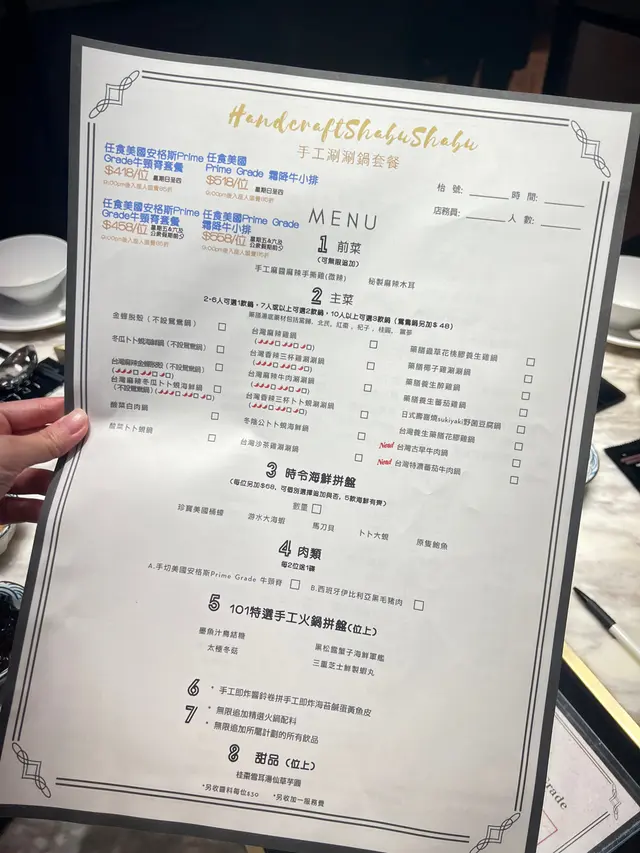 HandcraftShabuShabu
手工涮涮鍋套餐
任食美國安格斯Prime Grade牛頸脊套餐
$418/位 星期日至四
9:00pm後入座人頭費95折
任食美國
Prime Grade 霜降牛小排
$518/位 星期日至四
9:00pm後入座人頭費95折
任食美國安格斯Prime Grade牛頸脊套餐
$458/位 星期五&六及公眾假期前夕
9:00pm後入座人頭費95折
任食美國Prime Grade 霜降牛小排
$558/位 星期五&六及公眾假期前夕
9:00pm後入座人頭費95折
枱 號: 時 間:
店務員: 人 數:
MENU
1 前菜
(可無限追加)
手工麻醬麻辣手撕雞(微辣) 秘製麻辣木耳
2 主菜
2-6人可選1款鍋，7人或以上可選2款鍋，10人以上可選3款鍋 (鴛鴦鍋另加$ 48)
金蟬脫殼 (不設鴛鴦鍋)
冬瓜卜卜蜆海鮮鍋 (不設鴛鴦鍋)
台灣麻辣金蟬脫殼 (不設鴛鴦鍋)
台灣麻辣冬瓜卜卜蜆海鮮鍋
(不設鴛鴦鍋)
酸菜白肉鍋
酸菜卜卜蜆鍋
台灣麻辣雞鍋
台灣香辣三杯雞涮涮鍋
台灣麻辣牛肉涮涮鍋
台灣香辣三杯卜卜蜆涮涮鍋
冬陰公卜卜蜆海鮮鍋
台灣沙茶雞涮涮鍋
藥膳蟲草花桃膠養生雞鍋
藥膳椰子雞涮涮鍋
藥膳養生醉雞鍋
藥膳養生蕃茄雞鍋
日式壽喜燒sukiyaki野菌豆腐鍋
台灣養生藥膳花膠雞鍋
New! 台灣古早牛肉鍋
New! 台灣特濃蕃茄牛肉鍋
3 時令海鮮拼盤
(每位另加$68, 可個別選擇追加與否, 5款海鮮有齊)
數量
珍寶美國桶蠔 游水大海蝦 馬刀貝 卜卜大蜆 原隻鮑魚
4 肉類
每2位送1碟
A.手切美國安格斯Prime Grade 牛頸脊 B.西班牙伊比利亞黑毛豬肉
5 101特選手工火鍋拼盤(位上)
墨魚汁鳥結糖 黑松露蟹子海鮮軍艦
太極冬菇 三重芝士鮮製蝦丸
6 * 手工即炸響鈴卷拼手工即炸海苔鹹蛋黃魚皮
7 * 無限追加精選火鍋配料
* 無限追加所屬計劃的所有飲品
8 甜品 (位上)
桂棗雪耳湯仙草芋圓
*另收醬料每位$30 *另收加一服務費